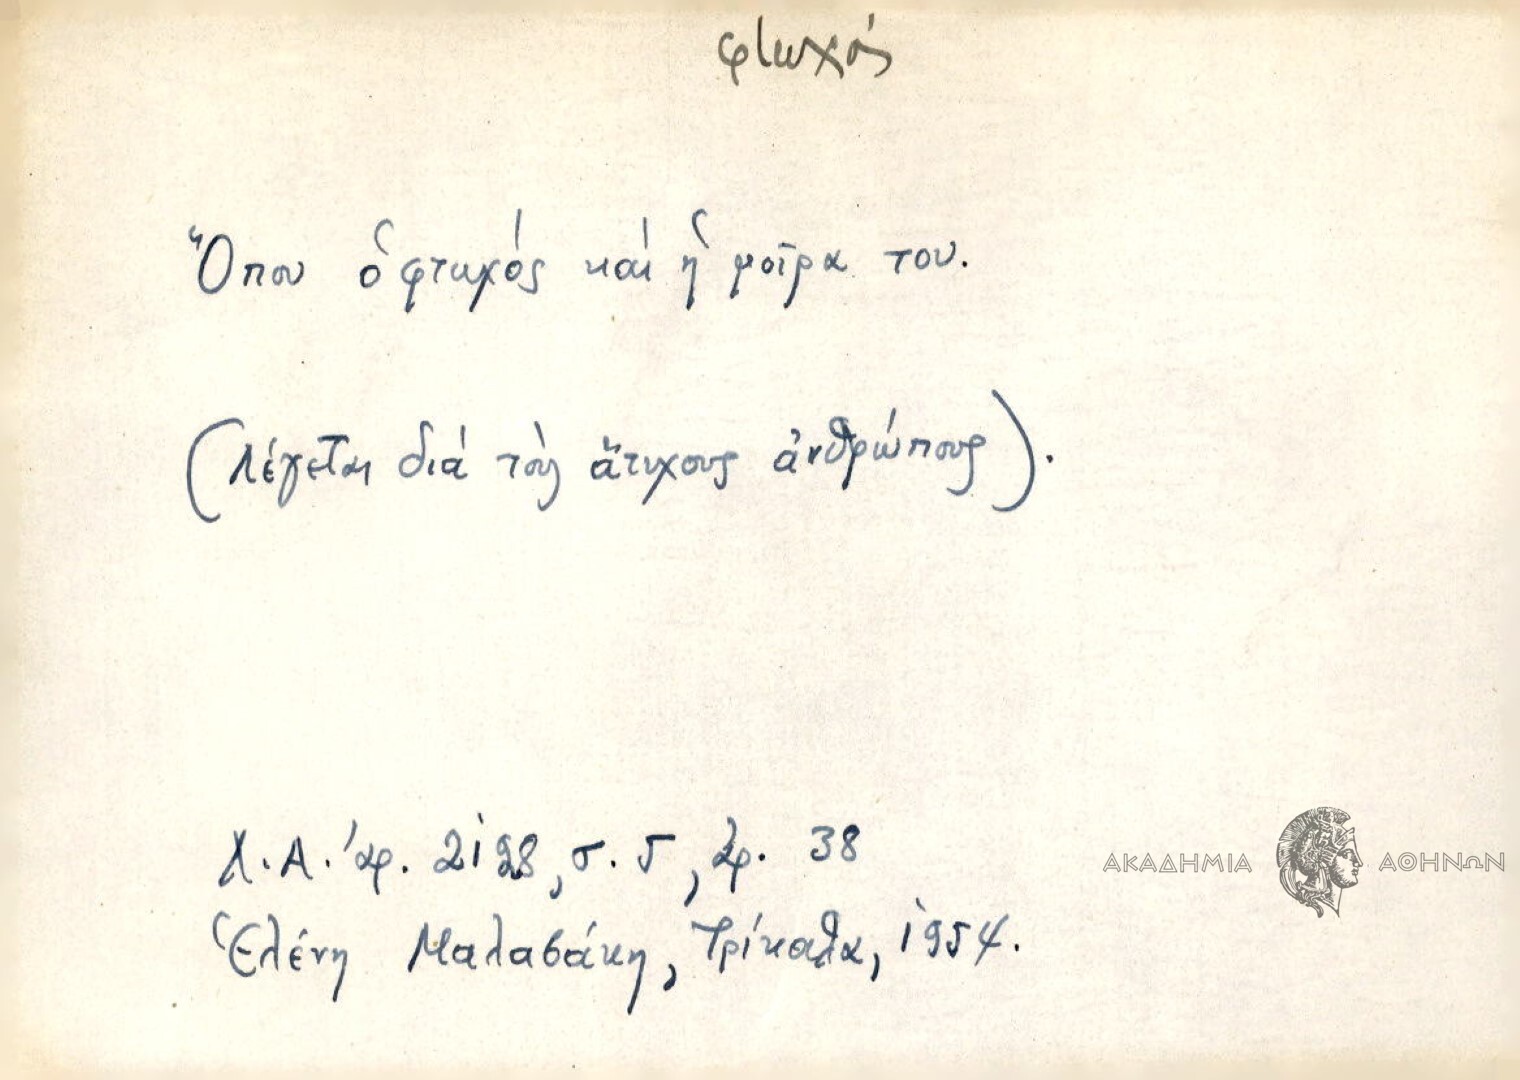 φτωχός
Ὅπου ὁ φτωχός καί ἡ μοῖρα του.
(Λέγεται διά τούς ἄτυχους ἀνθρώπους).
Λ.Α. ἀρ. 2128, σ. 5, ἀρ. 38
Ἑλένη Μαλαβάκη, Τρίκαλα, 1954.
ΑΚΑΔΗΜΙΑ ΑΘΗΝΩΝ